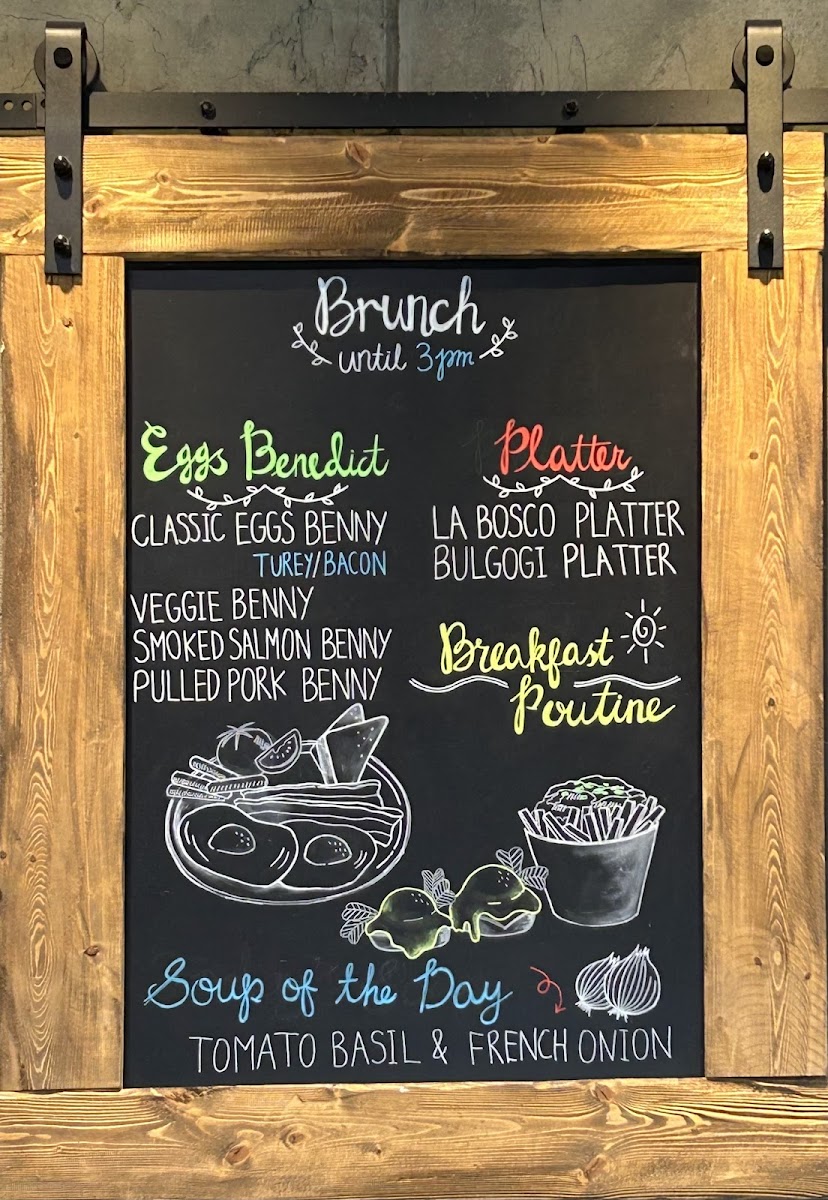 Brunch
until 3pm
Eggs Benedict
CLASSIC EGGS BENNY
TUREY/BACON
VEGGIE BENNY
SMOKED SALMON BENNY
PULLED PORK BENNY
Platter
LA BOSCO PLATTER
BULGOGI PLATTER
Breakfast
Poutine
Soup of the Day
TOMATO BASIL & FRENCH ONION